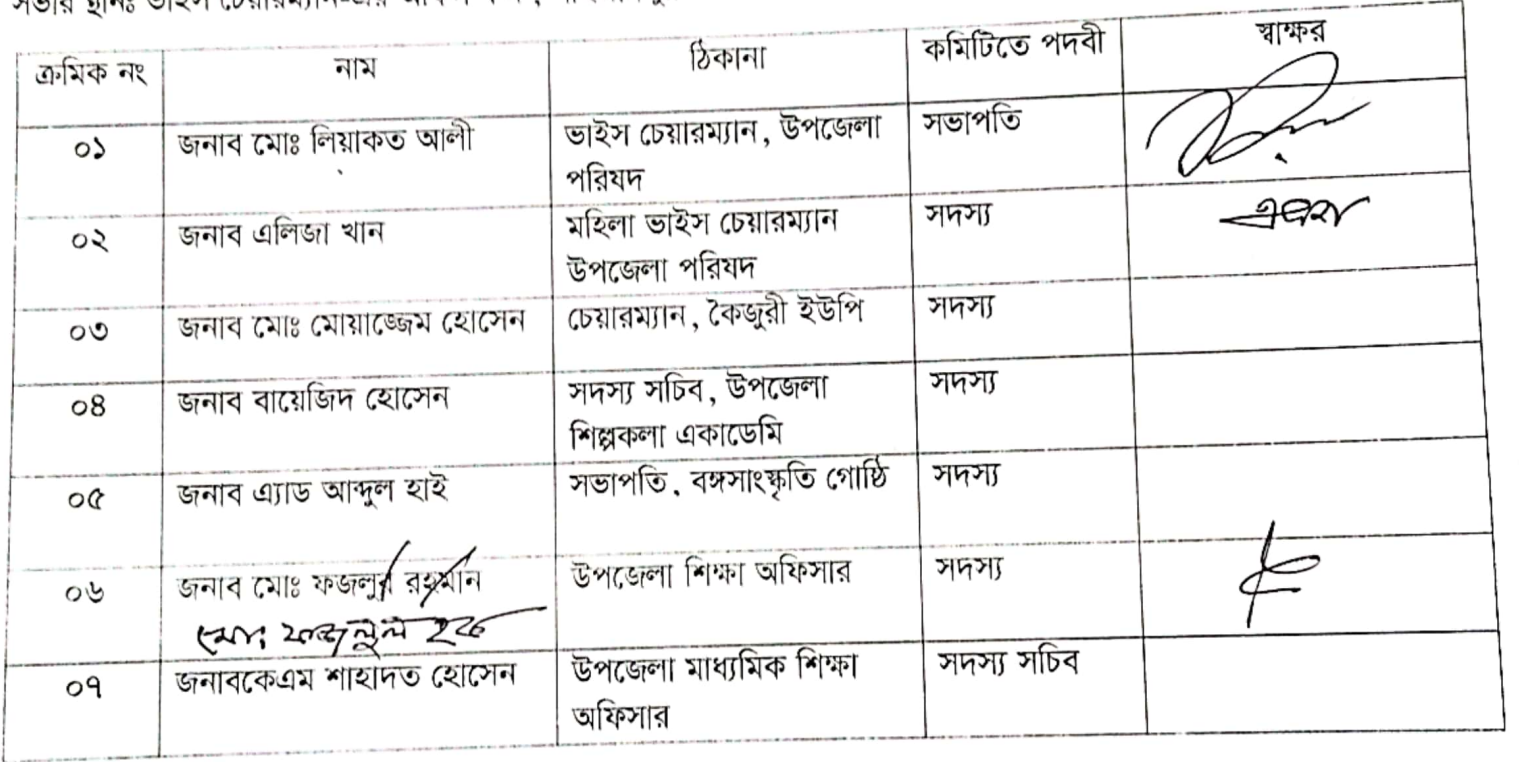 সভার স্থানঃ ভাইস চেয়ারম্যান-এর
ক্রমিক নং নাম ঠিকানা কমিটিতে পদবী স্বাক্ষর
০১ জনাব মোঃ লিয়াকত আলী ভাইস চেয়ারম্যান, উপজেলা সভাপতি
পরিষদ
০২ জনাব এলিজা খান মহিলা ভাইস চেয়ারম্যান সদস্য
উপজেলা পরিষদ
০৩ জনাব মোঃ মোয়াজ্জেম হোসেন চেয়ারম্যান, কৈজুরী ইউপি সদস্য
০৪ জনাব বায়েজিদ হোসেন সদস্য সচিব, উপজেলা সদস্য
শিল্পকলা একাডেমি
০৫ জনাব এ্যাড আব্দুল হাই সভাপতি, বঙ্গসাংস্কৃতি গোষ্ঠি সদস্য
০৬ জনাব মোঃ ফজলুর রহমান উপজেলা শিক্ষা অফিসার সদস্য
মোঃ ফজলুল হক
০৭ জনাবকেএম শাহাদত হোসেন উপজেলা মাধ্যমিক শিক্ষা সদস্য সচিব
অফিসার